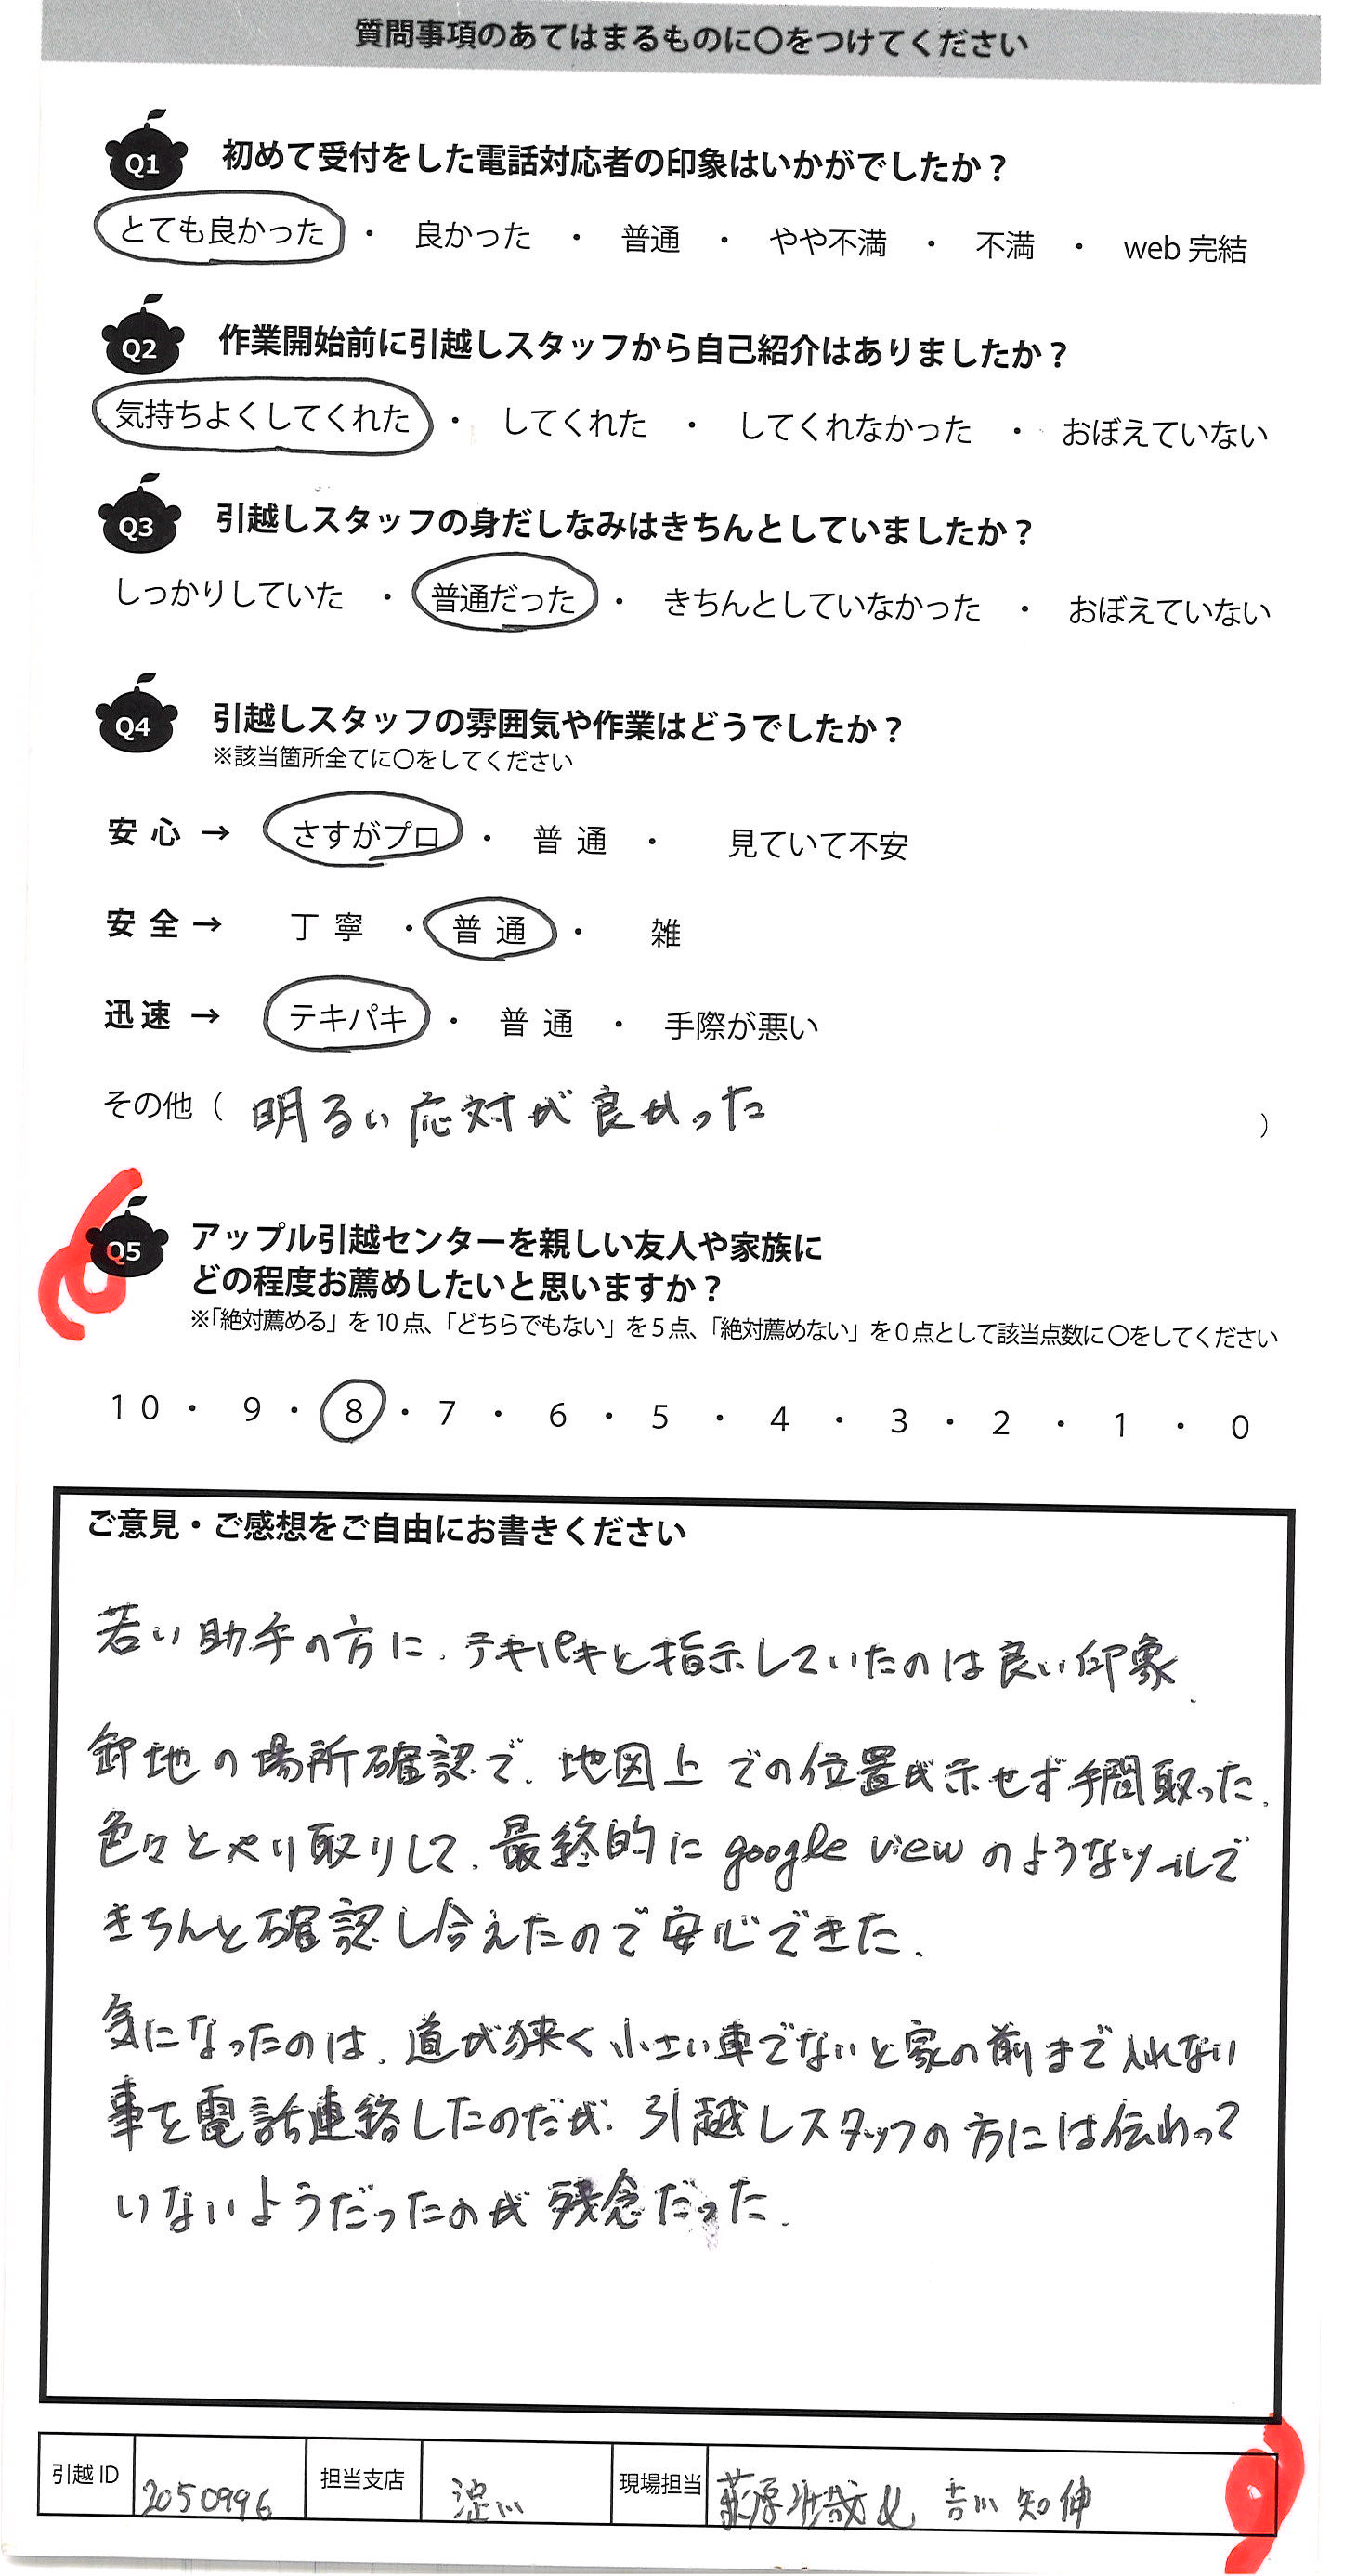 質問事項のあてはまるものに〇をつけてください
Q1 初めて受付をした電話対応者の印象はいかがでしたか？
とても良かった ・ 良かった ・ 普通 ・ やや不満 ・ 不満 ・ web 完結
Q2 作業開始前に引越しスタッフから自己紹介はありましたか？
気持ちよくしてくれた ・ してくれた ・ してくれなかった ・ おぼえていない
Q3 引越しスタッフの身だしなみはきちんとしていましたか？
しっかりしていた ・ 普通だった ・ きちんとしていなかった ・ おぼえていない
Q4 引越しスタッフの雰囲気や作業はどうでしたか？
※該当箇所全てに〇をしてください
安心 → さすがプロ ・ 普通 ・ 見ていて不安
安全 → 丁寧 ・ 普通 ・ 雑
迅速 → テキパキ ・ 普通 ・ 手際が悪い
その他（ 明るい応対が良かった ）
Q5 アップル引越センターを親しい友人や家族に
どの程度お薦めしたいと思いますか？
※「絶対薦める」を 10 点、「どちらでもない」を 5 点、「絶対薦めない」を 0 点として該当点数に 〇をしてください
10 ・ 9 ・ 8 ・ 7 ・ 6 ・ 5 ・ 4 ・ 3 ・ 2 ・ 1 ・ 0
ご意見・ご感想をご自由にお書きください
若い助手の方に、テキパキと指示していたのは良い印象、
卸地の場所確認で、地図上での位置が示せず手間取った、
色々とやり取りして、最終的に google view のようなツールで
きちんと確認し合えたので安心できた、
気になったのは、道が狭く小さい車でないと家の前まで入れない
事を電話連絡したのだが、引越しスタッフの方には伝わって
いないようだったのが残念だった、
引越 ID 2050996 担当支店 淀川 現場担当 萩原 吉川 知伸